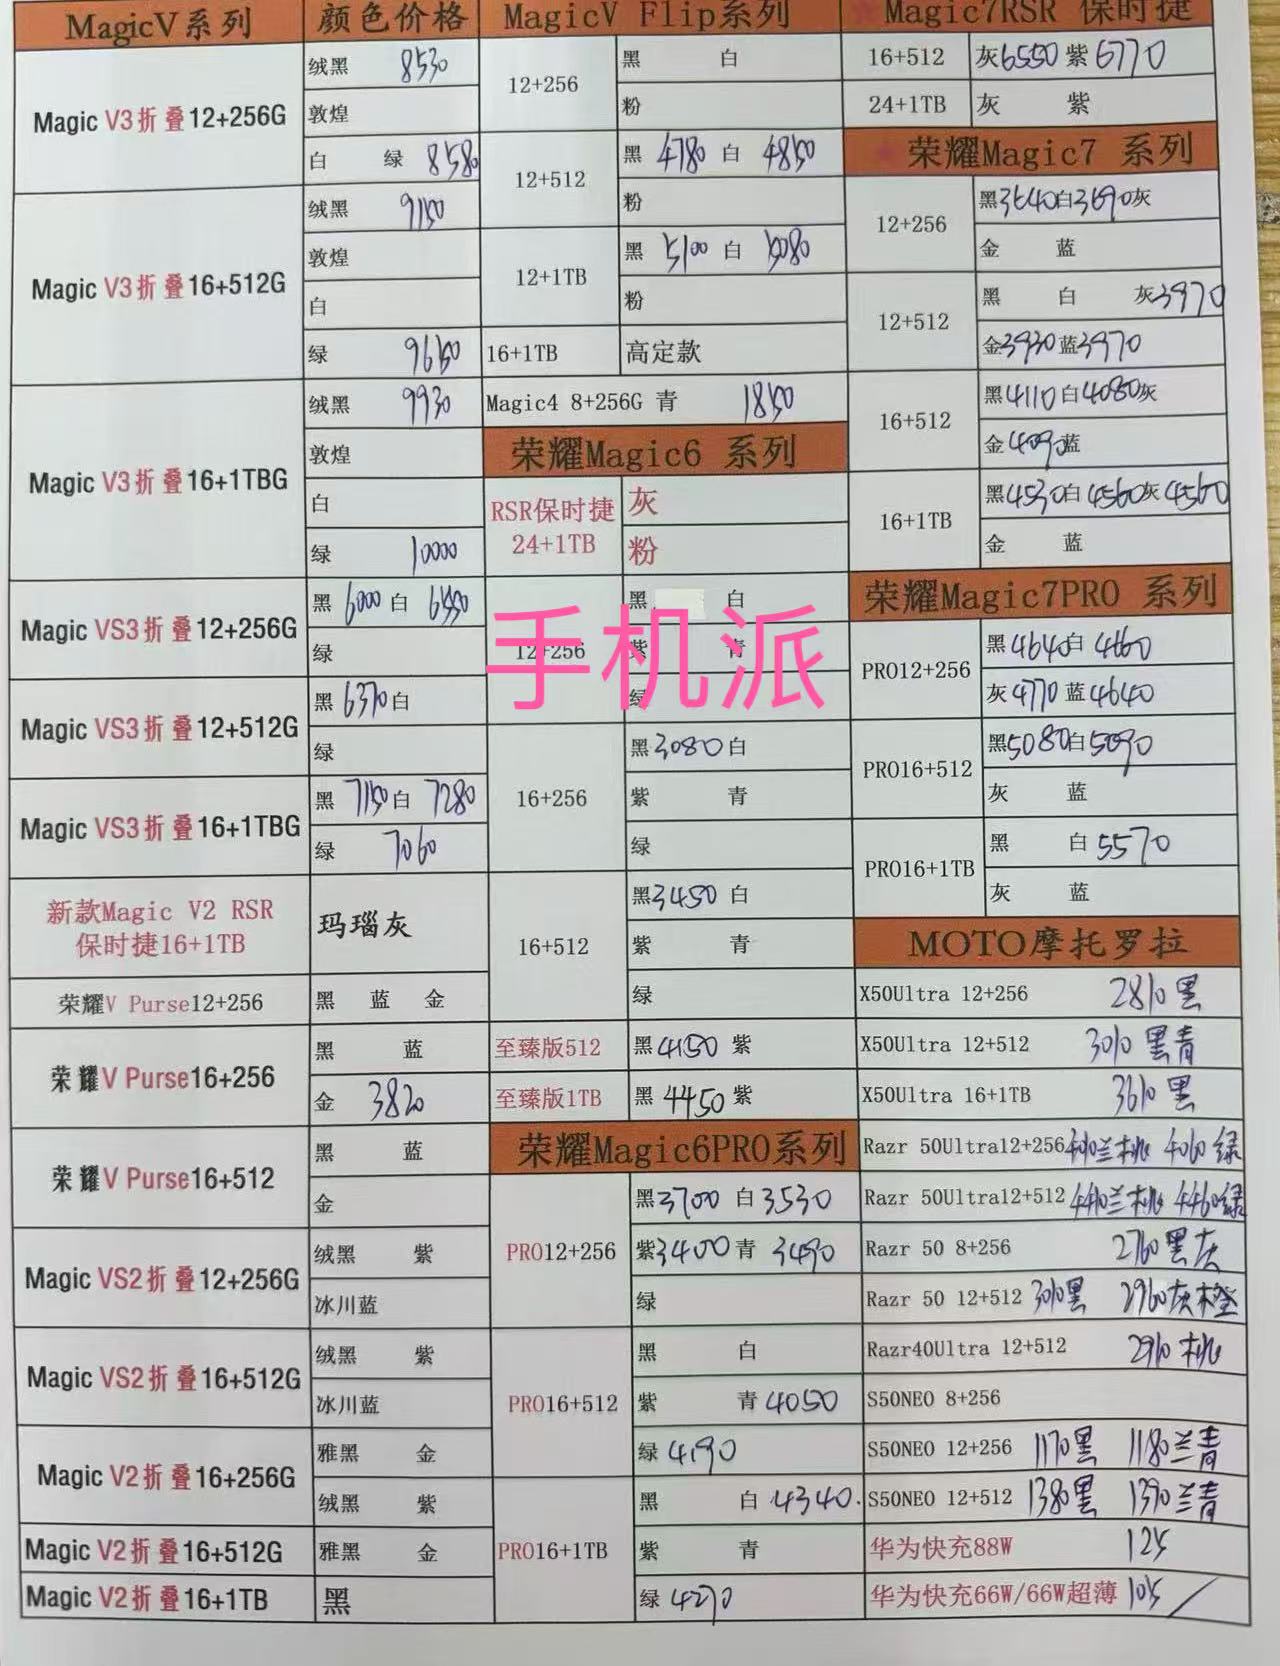 MagicV系列 颜色价格
Magic V3折叠12+256G
绒黑 8530
敦煌
白 绿 8580
Magic V3折叠16+512G
绒黑 9150
敦煌
白
绿 9650
Magic V3折叠16+1TBG
绒黑 9930
敦煌
白
绿 10000
Magic VS3折叠12+256G
黑 6000 白
绿
Magic VS3折叠12+512G
黑 6370 白
绿
Magic VS3折叠16+1TBG
黑 7150 白 7280
绿 7060
新款Magic V2 RSR
保时捷16+1TB
玛瑙灰
荣耀V Purse12+256
黑 蓝 金
荣耀V Purse16+256
黑 蓝
金 3820
荣耀V Purse16+512
黑 蓝
金
Magic VS2折叠12+256G
绒黑 紫
冰川蓝
Magic VS2折叠16+512G
绒黑 紫
冰川蓝
Magic V2折叠16+256G
雅黑 金
绒黑 紫
Magic V2折叠16+512G
雅黑 金
Magic V2折叠16+1TB
黑
MagicV Flip系列
12+256
黑 白
粉
12+512
黑 4780 白 4850
粉
12+1TB
黑 5100 白 5080
粉
16+1TB 高定款
Magic4 8+256G 青 1850
荣耀Magic6 系列
RSR保时捷
24+1TB
灰
粉
12+256
黑 白
紫 青
绿
手机派
16+256
黑3080白
紫 青
绿
16+512
黑3450 白
紫 青
绿
至臻版512 黑4150 紫
至臻版1TB 黑 4450 紫
荣耀Magic6PRO系列
PRO12+256
黑3700 白3530
紫3400 青 3490
绿
PRO16+512
黑 白
紫 青4050
绿4190
PRO16+1TB
黑 白4340.
紫 青
绿4270
Magic7RSR 保时捷
16+512 灰6550 紫6770
24+1TB 灰 紫
荣耀Magic7 系列
12+256
黑3640白3690灰
金 蓝
12+512
黑 白 灰3970
金3930蓝3970
16+512
黑4110白4080灰
金4090蓝
16+1TB
黑4530白4560灰4560
金 蓝
荣耀Magic7PRO 系列
PRO12+256
黑4640白4660
灰4770蓝4640
PRO16+512
黑5080白5090
灰 蓝
PRO16+1TB
黑 白5570
灰 蓝
MOTO摩托罗拉
X50Ultra 12+256 2810黑
X50Ultra 12+512 3010黑青
X50Ultra 16+1TB 3610黑
Razr 50Ultra12+256 兰桃 4060绿
Razr 50Ultra12+512 4410兰桃 4460绿
Razr 50 8+256 2760黑灰
Razr 50 12+512 3010黑 2960灰橙
Razr40Ultra 12+512 2910桃
S50NEO 8+256
S50NEO 12+256 1170黑 1180兰青
S50NEO 12+512 1380黑 1390兰青
华为快充88W 125
华为快充66W/66W超薄 105